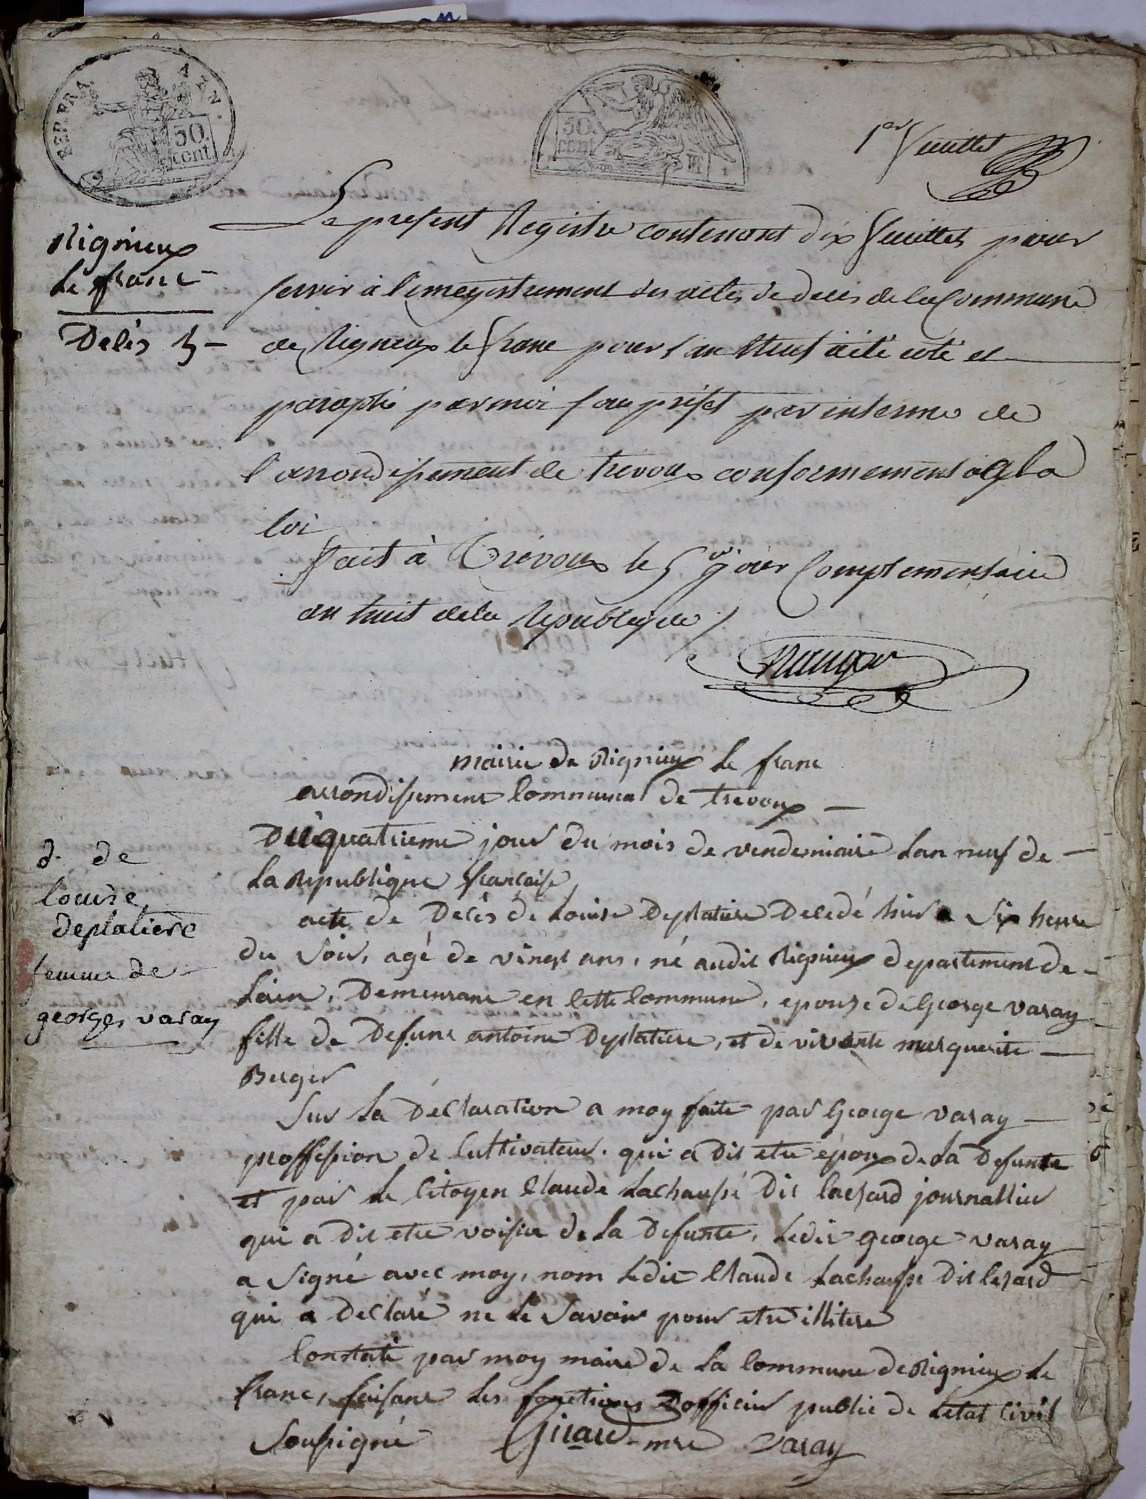 REP. FRA.
A7N.
50. cent
50. cent
1er feuillet
Rignieux
Le franc
Décès 5
Le present Registre contenant dix feuillets pour
servir à l'enregistrement des actes de deces de la Commune
de Rigneux le franc pour l'an Neuf a été coté et
paraphé par moi sous préfet par interme de
l'arrondissement de trevoux conformement à la
loi
fait à Trévoux le 5me jour Complementaire
an huit de la Republique
mairie de Rignieux Le franc
arrondissement Communal de trevoux
Du quatrieme jour du mois de vendemiaire Lan neuf de
La Republique française
acte de Décès de Louise Deplatiere Decedé hier a Six heure
du Soir, agé de vingt ans, né audit Rignieux departement de
Lain, Demeurant en Cette Commune, epouze de George varay
fille de Defunt antoine Deplatiere, et de vivante marguerite
Berger
d. de
Louise
deplatiere
femme de
georges varay
Sur La Déclaration a moy faite par George varay
proffession de Cultivateur, qui a Dit etre époux de La Defunte
et par Le Citoyen Claude Lachausse Dit Lesard journallier
qui a Dit etre voisin de La Defunte, Ledit george varay
a Signé avec moy, nom Ledit Claude Lachausse Dit Lesard
qui a Declaré ne Le Savoir pour etre illitere
Constaté par moy maire de La Commune de Rignieux Le
franc, faisant Les fonctions Dofficier public de Letat Civil
Soussigné Girard mre varay